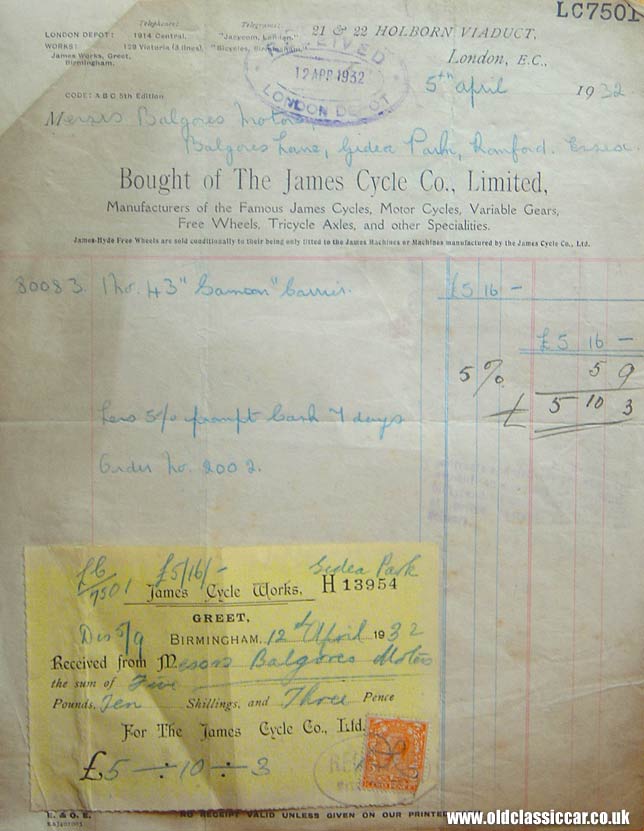 LC7501
Telephones: Telegrams:
LONDON DEPOT: 1914 Central. "Jacycom, London."
WORKS: 129 Victoria (3 lines). "Bicycles, Birmingham."
James Works, Greet,
Birmingham.
21 & 22 HOLBORN VIADUCT,
London, E.C.,
RECEIVED
12 APR 1932
LONDON DEPOT
CODE: A B C 5th Edition
5th April 1932
Messrs Balgores Motors,
Balgores Lane, Gidea Park, Romford. Essex.
Bought of The James Cycle Co., Limited,
Manufacturers of the Famous James Cycles, Motor Cycles, Variable Gears,
Free Wheels, Tricycle Axles, and other Specialities.
James-Hyde Free Wheels are sold conditionally to their being only fitted to the James Machines or Machines manufactured by the James Cycle Co., Ltd.
80083. 1 No. 43" Carrier. £5 16 -
£5 16 -
5% 5 9
£ 5 10 3
Less 5% prompt Cash 7 days
Order No. 2002.
£5/16/- Gidea Park
7501
James Cycle Works, H 13954
GREET,
Dis 5/9 BIRMINGHAM, 12th April 1932
Received from Messrs Balgores Motors
the sum of Five
Pounds, Ten Shillings, and Three Pence
For The James Cycle Co., Ltd.
£5 ÷ 10 ÷ 3
E. & O. E. NO RECEIPT VALID UNLESS GIVEN ON OUR PRINTED
www.oldclassiccar.co.uk